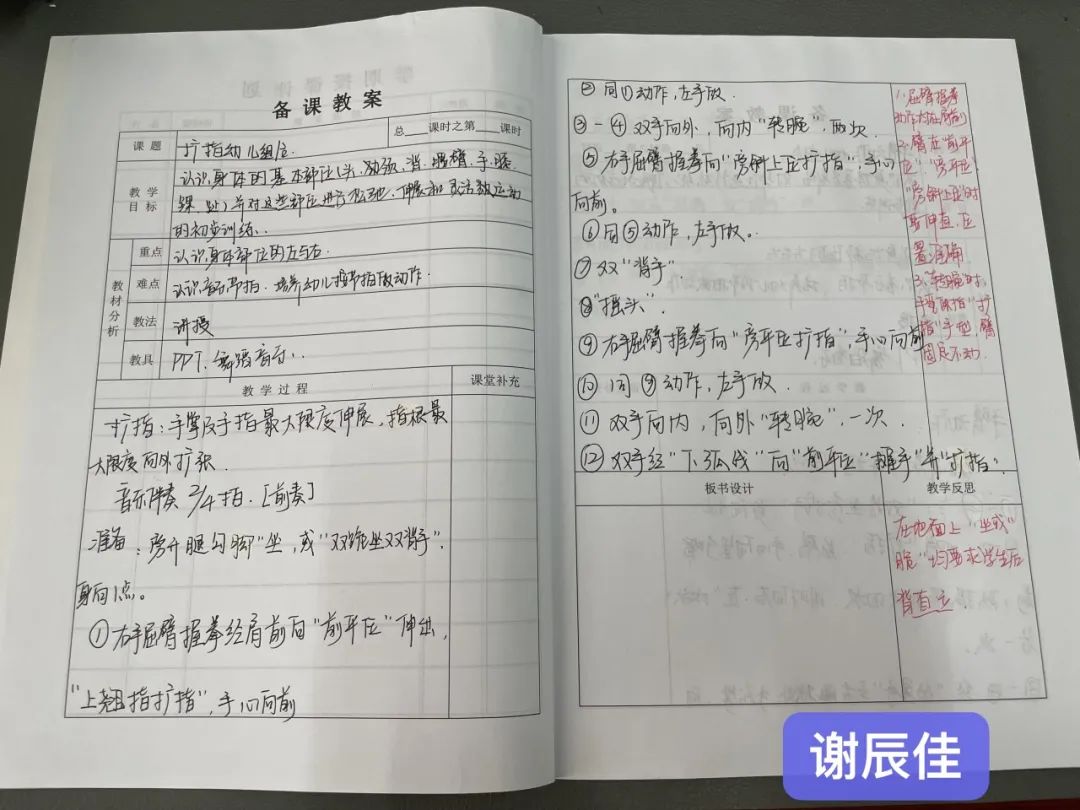 备课教案
课题 扩指幼儿组合 总 课时之第 课时
教学目标 认识身体的基本部位(头、颈、肩、臂、手、膝
踝、趾)并对这些部位进行松弛、伸展和灵活性运动
的初步训练.
教材分析
重点 认识身体部位的左与右.
难点 认识音乐节拍. 培养幼儿按节拍做动作.
教法 讲授
教具 PPT、舞蹈音乐.
教学过程 课堂补充
扩指:手掌及手指最大限度伸展,指根最
大限度向外扩张.
音乐伴奏 2/4拍.[前奏]
准备:"旁开腿勾脚"坐,或"双跪坐双背手".
身向1点。
①右手屈臂握拳经肩前向"前平位"伸出,
"上翘指扩指",手心向前
②同①动作,左手做.
③-④双手向外,向内"转腕",两次.
⑤右手屈臂握拳向"旁斜上位扩指",手心
向前。
⑥同⑤动作,左手做。
⑦双"背手".
⑧"摇头".
⑨右手屈臂握拳向"旁平位扩指",手心向前
⑩同⑨动作,左手做.
⑪双手向内,向外"转腕",一次.
⑫双手经"下弧线"向"前平位"摊手"并"扩指".
1.屈臂握拳
动作大在肩前
2.臂在"前平
位""旁平位"
"旁斜上位"时
要伸直,位
置准确
3."转腕"时,
手保持"扩
指"手型,臂
固定不动.
板书设计 教学反思
在地面上"坐或"
跪"均要求学生后
背直立
谢辰佳